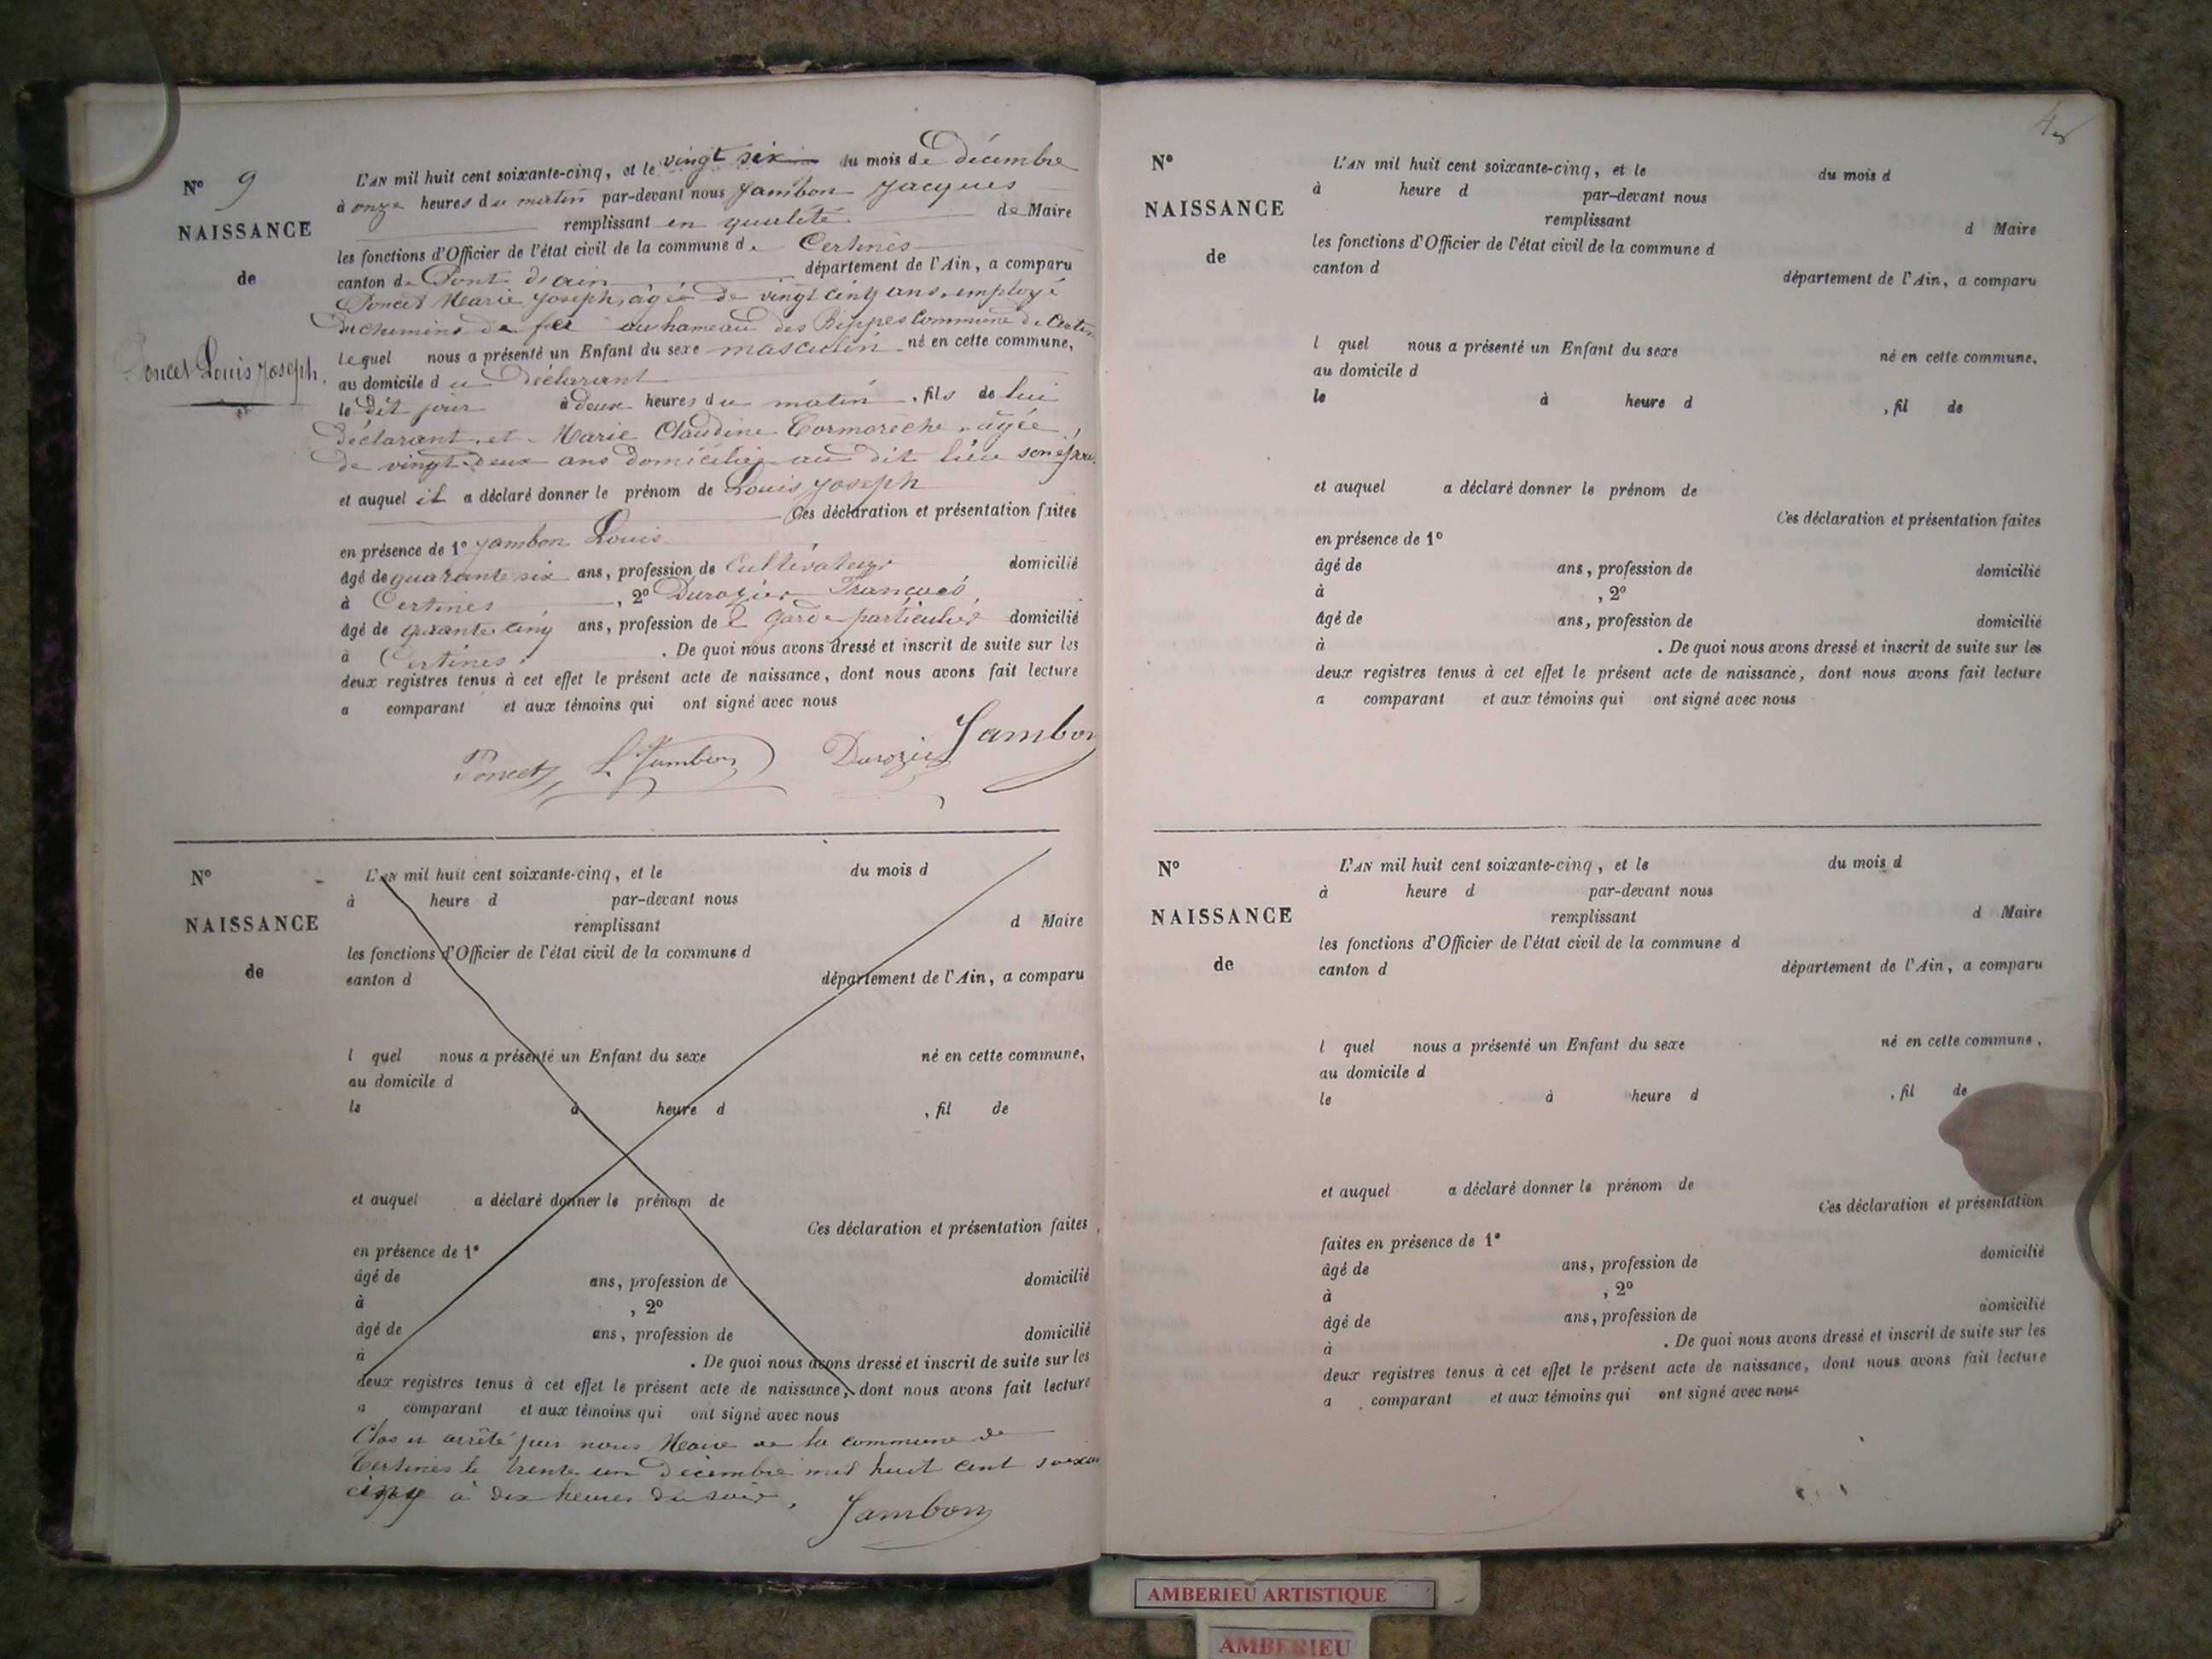 N° 9
NAISSANCE
de
Poncet Louis Joseph.
L'AN mil huit cent soixante-cinq, et le vingt six du mois de Décembre
à onze heures du matin par-devant nous Jambon Jacques
remplissant en qualité de Maire
les fonctions d'Officier de l'état civil de la commune de Certines
canton de Pont d'ain département de l'Ain, a comparu
Poncet Marie Joseph, âgé de vingt cinq ans, employé
du chemins de fer au hameau des Rippes Commune de
Lequel nous a présenté un Enfant du sexe masculin né en cette commune,
au domicile du Déclarant
le dit jour à deux heures du matin, fils de lui
déclarant, et Marie Claudine Cormorèche, âgée
de vingt-deux ans domiciliée au dit lieu son
et auquel il a déclaré donner le prénom de Louis Joseph
Ces déclaration et présentation faites
en présence de 1° Jambon Louis
âgé de quarante six ans, profession de Cultivateur domicilié
à Certines, 2° Durozier
âgé de cinq ans, profession de Garde particulier domicilié
à Certines. De quoi nous avons dressé et inscrit de suite sur les
deux registres tenus à cet effet le présent acte de naissance, dont nous avons fait lecture
a comparant et aux témoins qui ont signé avec nous
Poncet L. Jambon Durozier Jambon
N°
NAISSANCE
de
L'AN mil huit cent soixante-cinq, et le du mois d
à heure d par-devant nous
remplissant d Maire
les fonctions d'Officier de l'état civil de la commune d
canton d département de l'Ain, a comparu
l quel nous a présenté un Enfant du sexe né en cette commune,
au domicile d
le à heure d , fil de
et auquel a déclaré donner le prénom de
Ces déclaration et présentation faites
en présence de 1°
âgé de ans, profession de domicilié
à , 2°
âgé de ans, profession de domicilié
à . De quoi nous avons dressé et inscrit de suite sur les
deux registres tenus à cet effet le présent acte de naissance, dont nous avons fait lecture
a comparant et aux témoins qui ont signé avec nous
Clos et arrêté par nous Maire de la commune de
Certines le trente un Décembre mil huit cent
cinq à dix heures du soir,
Jambon
N°
NAISSANCE
de
L'AN mil huit cent soixante-cinq, et le du mois d
à heure d par-devant nous
remplissant d Maire
les fonctions d'Officier de l'état civil de la commune d
canton d département de l'Ain, a comparu
l quel nous a présenté un Enfant du sexe né en cette commune,
au domicile d
le à heure d , fil de
et auquel a déclaré donner le prénom de
Ces déclaration et présentation faites
en présence de 1°
âgé de ans, profession de domicilié
à , 2°
âgé de ans, profession de domicilié
à . De quoi nous avons dressé et inscrit de suite sur les
deux registres tenus à cet effet le présent acte de naissance, dont nous avons fait lecture
a comparant et aux témoins qui ont signé avec nous
N°
NAISSANCE
de
L'AN mil huit cent soixante-cinq, et le du mois d
à heure d par-devant nous
remplissant d Maire
les fonctions d'Officier de l'état civil de la commune d
canton d département de l'Ain, a comparu
l quel nous a présenté un Enfant du sexe né en cette commune,
au domicile d
le à heure d , fil de
et auquel a déclaré donner le prénom de
Ces déclaration et présentation
faites en présence de 1° domicilié
âgé de ans, profession de
à , 2° domicilié
âgé de ans, profession de
à . De quoi nous avons dressé et inscrit de suite sur les
deux registres tenus à cet effet le présent acte de naissance, dont nous avons fait lecture
a comparant et aux témoins qui ont signé avec nous
AMBERIEU ARTISTIQUE
AMBERIEU